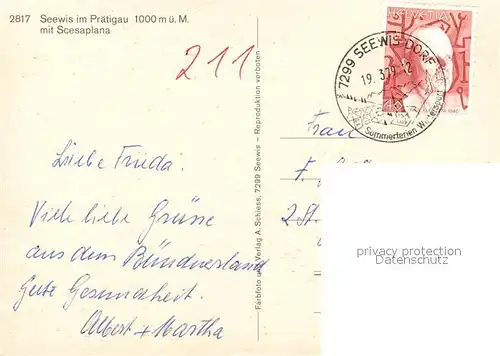 2817 Seewis im Prätigau 1000 m ü. M.
mit Scesaplana
211
Liebe Frieda!
Viele liebe Grüsse
aus dem Bündnerland
Gute Gesundheit.
Albert + Martha
Farbfoto und Verlag A. Schiess, 7299 Seewis — Reproduktion verboten
HELVETIA
7299 SEEWIS-DORF
19. 3.79.-12
Sommerferien Wintersport
Frau
F.
2.St.
privacy protection
Datenschutz